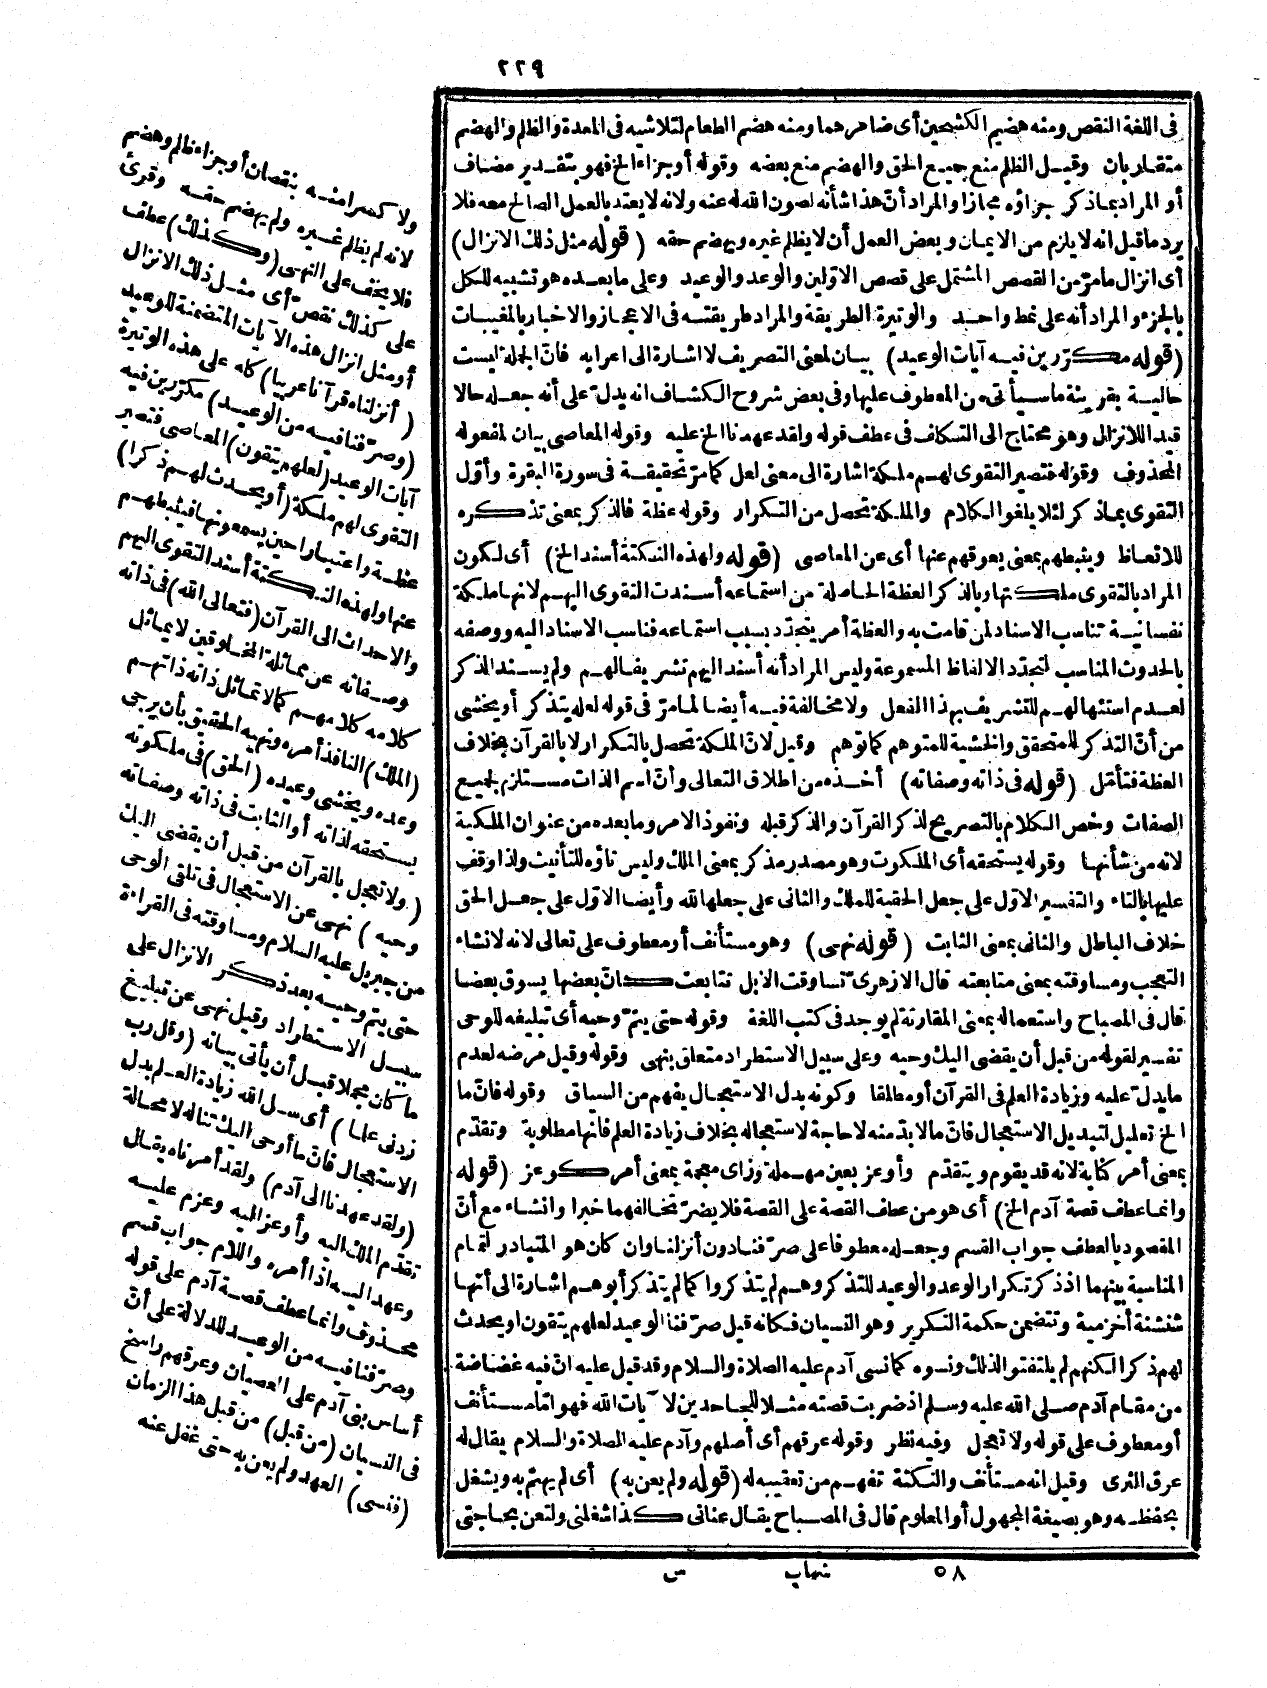 ٢٢٩
فى اللغة النقص ومنه هضيم الكشحين أى ضامرهما ومنه هضم الطعام لتلاشيه فى المعدة والظلم والهضم
متقاربان وقيل الظلم منع جميع الحق والهضم منع بعضه وقوله أو جزاء الخ فهو بتقدير مضاف
أو المراد بما ذكر جزاؤه مجازا والمراد أن هذا شأنه لصون الله له عنه ولانه لا يعتد بالعمل الصالح معه فلا
يرد ما قيل انه لا يلزم من الايمان وبعض العمل أن لا يظلم غيره ويهضم حقه (قوله مثل ذلك الانزال)
أى انزال ما مر من القصص المشتمل على قصص الاولين والوعد والوعيد وعلى ما بعده هو تشبيه للكل
بالجزء والمراد أنه على نمط واحد والوتيرة الطريقة والمراد طريقته فى الاعجاز والاخبار بالمغيبات
(قوله مكررين فيه آيات الوعيد) بيان لمعنى التصريف لا اشارة الى اعرابه فان الجملة ليست
حالية بقرينة ما سيأتى من المعطوف عليها وفى بعض شروح الكشاف انه يدل على أنه جعله حالا
قيد اللانزال وهو محتاج الى التكلف فى عطف قوله ولقد عهدنا الخ عليه وقوله المعاصى بيان لمفعوله
المحذوف وقوله فتصير التقوى لهم ملكة اشارة الى معنى لعل كما مر تحقيقه فى سورة البقرة وأول
التقوى بما ذكر لئلا يلغو الكلام والملكة تحصل من التكرار وقوله عظة فالذكر بمعنى تذكره
للاتعاظ ويثبطهم بمعنى يعوقهم عنها أى عن المعاصى (قوله ولهذه النكتة أسند الخ) أى لكون
المراد بالتقوى ملكتها وبالذكر العظة الحاصلة من استماعه أسندت التقوى اليهم لانها ملكة
نفسانية تناسب الاسناد لمن قامت به والعظة أمر يتجدد بسبب استماعه فناسب الاسناد اليه ووصفه
بالحدوث المناسب لتجدد الالفاظ المسموعة وليس المراد أنه أسند اليهم تشريفا لهم ولم يسند الذكر
لعدم استئهالهم للتشريف بهذا الفعل ولا مخالفة فيه أيضا لما مر فى قوله لعله يتذكر أو يخشى
من أن التذكر للمتحقق والخشية للمتوهم كما توهم وقيل لان الملكة تحصل بالتكرار لا بالقرآن بخلاف
العظة فتأمل (قوله فى ذاته وصفاته) أخذه من اطلاق التعالى وأن اسم الذات مستلزم لجميع
الصفات وخص الكلام بالتصريح لذكر القرآن والذكر قبله ونفوذ الامر وما بعده من عنوان الملكية
لانه من شأنها وقوله يستحقه أى الملكوت وهو مصدر مذكر بمعنى الملك وليس تاؤه للتأنيث ولذا وقف
عليها بالتاء والتفسير الاول على جعل الحقية للملك والثانى على جعلها لله وأيضا الاول على جعل الحق
خلاف الباطل والثانى بمعنى الثابت (قوله نهى) وهو مستأنف أو معطوف على تعالى لانه لانشاء
التعجب ومساوقته بمعنى متابعته قال الازهرى تساوقت الابل تتابعت كان بعضها يسوق بعضا
قال فى المصباح واستعماله بمعنى المقارنة لم يوجد فى كتب اللغة وقوله حتى يتم وحيه أى تبليغه للوحى
تفسير لقوله من قبل أن يقضى اليك وحيه وعلى سبيل الاستطراد متعلق بنهى وقوله وقيل مرضه لعدم
ما يدل عليه وزيادة العلم فى القرآن أو مطلقا وكونه بدل الاستعجال يفهم من السياق وقوله فان ما
الخ تعليل لتبديل الاستعجال فان ما لا بد منه لا حاجة لاستعجاله بخلاف زيادة العلم فانها مطلوبة وتقدم
بمعنى أمر كناية لانه قد يقوم ويتقدم وأوعز بعين مهملة وزاى معجمة بمعنى أمر كوعز (قوله
وانما عطف قصة آدم الخ) أى هو من عطف القصة على القصة فلا يضر تخالفهما خبرا وانشاء مع أن
المقصود بالعطف جواب القسم وجعله معطوفا على صرفنا دون أنزلنا وان كان هو المتبادر لتمام
المناسبة بينهما اذ ذكر تكرار الوعد والوعيد للتذكر وهم لم يتذكروا كما لم يتذكر أبوهم اشارة الى أنها
شنشنة أخزمية وتتضمن حكمة التكرير وهو النسيان فكانه قيل صرفنا الوعيد لعلهم يتقون او يحدث
لهم ذكرا لكنهم لم يلتفتوا لذلك ونسوه كما نسى آدم عليه الصلاة والسلام وقد قيل عليه ان فيه غضاضة
من مقام آدم صلى الله عليه وسلم اذ ضربت قصته مثلا للجاحدين لآيات الله فهو اما مستأنف
أو معطوف على قوله ولا تعجل وفيه نظر وقوله عرقهم أى أصلهم وآدم عليه الصلاة والسلام يقال له
عرق الثرى وقيل انه مستأنف والنكتة تفهم من تعقيبه له (قوله ولم يعن به) أى لم يهتم به ويشغل
بحفظه وهو بصيغة المجهول أو المعلوم قال فى المصباح يقال عنانى كذا شغلنى ولتعن بحاجتى
ولا كسرا منه بنقصان أو جزاء ظلم وهضم
لانه لم يظلم غيره ولم يهضم حقه وقرئ
فلا يخف على النهى (وكذلك) عطف
على كذلك نقص أى مثل ذلك الانزال
أو مثل انزال هذه الآيات المتضمنة للوعيد
(أنزلناه قرآنا عربيا) كله على هذه الوتيرة
(وصرفنا فيه من الوعيد) مكررين فيه
آيات الوعيد (لعلهم يتقون) المعاصى فتصير
التقوى لهم ملكة (أو يحدث لهم ذكرا)
عظة واعتبارا حين يسمعونها فيثبطهم
عنها ولهذه النكتة أسند التقوى اليهم
والاحداث الى القرآن (فتعالى الله) فى ذاته
وصفاته عن مماثلة المخلوقين لا يماثل
كلامه كلامهم كما لا تماثل ذاته ذاتهم
(الملك) النافذ أمره ونهيه الحقيق بأن يرجى
وعده ويخشى وعيده (الحق) فى ملكوته
يستحقه لذاته أو الثابت فى ذاته وصفاته
(ولا تعجل بالقرآن من قبل أن يقضى اليك
وحيه) نهى عن الاستعجال فى تلقى الوحى
من جبريل عليه السلام ومساوقته فى القراءة
حتى يتم وحيه بعد ذكر الانزال على
سبيل الاستطراد وقيل نهى عن تبليغ
ما كان مجملا قبل أن يأتى بيانه (وقل رب
زدنى علما) أى سل الله زيادة العلم بدل
الاستعجال فان ما أوحى اليك تناله لا محالة
(ولقد عهدنا الى آدم) ولقد أمرناه يقال
تقدم الملك اليه وأوعز اليه وعزم عليه
وعهد اليه اذا أمره واللام جواب قسم
محذوف وانما عطف قصة آدم على قوله
وصرفنا فيه من الوعيد للدلالة على أن
أساس بنى آدم على العصيان وعرقهم راسخ
فى النسيان (من قبل) من قبل هذا الزمان
(فنسى) العهد ولم يعن به حتى غفل عنه
٥٨ شهاب س